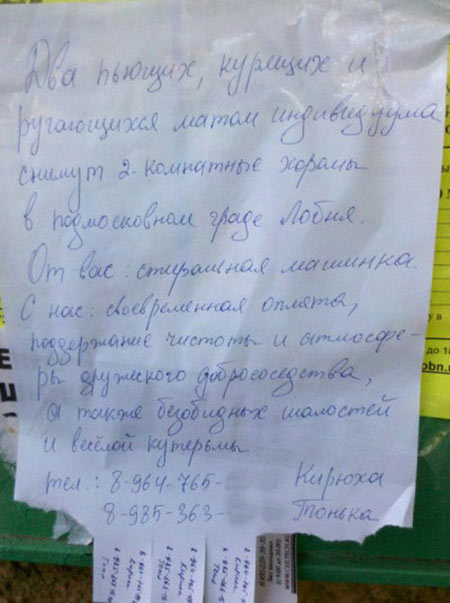 Два пьющих, курящих и
ругающихся матом индивидуума
снимут 2-комнатные хоромы
в подмосковном граде Лобня.
От вас: стиральная машинка.
С нас: своевременная оплата,
поддержание чистоты и атмосфе-
ры дружеского добрососедства,
а также безобидных шалостей
и весёлой кутерьмы.
тел.: 8-964-765- Кирюха
8-985-363- Тонька
до 18
obn.ru